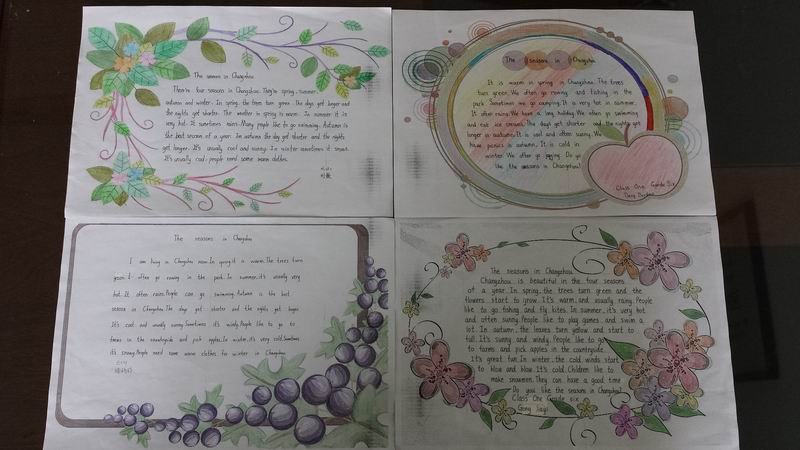 The seasons in Changzhou
There're four seasons in Changzhou. They're spring, summer,
autumn and winter. In spring, the trees turn green. The days get longer and
the nights get shorter. The weather in spring is warm. In summer it is
very hot. It sometimes rains. Many people like to go swimming. Autumn is
the best season of a year. In autumn the day get shorter and the nights
get longer. It's usually cool and sunny. In winter sometimes it snows.
It's usually cool. people need some warm clothes.
The seasons in Changzhou
It is warm in spring in Changzhou. The trees
turn green. We often go rowing and fishing in the
park. Sometimes we go camping. It is very hot in summer.
It often rains. We have a long holiday. We often go swimming
and eat ice creams. The days get shorter and the nights get
longer in autumn. It is cool and often sunny. We
have picnics in autumn. It is cold in
winter. We often go Do you
like the seasons in Changzhou?
Class One Garde Six
The seasons in Changzhou
I am living in Changzhou now. In spring it is warm. The trees turn
green. I often go rowing in the park. In summer, it's usually very
hot. It often rains. People can go swimming. Autumn is the best
season in Changzhou. The day get shorter and the nights get longer.
It's cool and usually sunny. Sometimes it's windy. People like to go to
farms in the countryside and pick apples. In winter, it's very cold. Sometimes
it's snowy. People need some warm clothes for winter in Changzhou.
The seasons in Changzhou
Changzhou is beautiful in the four seasons
of a year. In spring, the trees turn green and the
flowers start to grow. It's warm and usually rainy. People
like to go fishing and fly kites. In summer, it's very hot
and often sunny. People like to play games and swim a
lot. In autumn, the leaves turn yellow and start to
fall. It's sunny and windy. People like to go
to farms and pick apples in the countryside.
It's great fun. In winter, the cold winds start
to blow and blow. It's cold. Children like to
make snowmen. They can have a good time.
Do you like the seasons in Changzhou?
Class One Grade six
Gong Jiayi